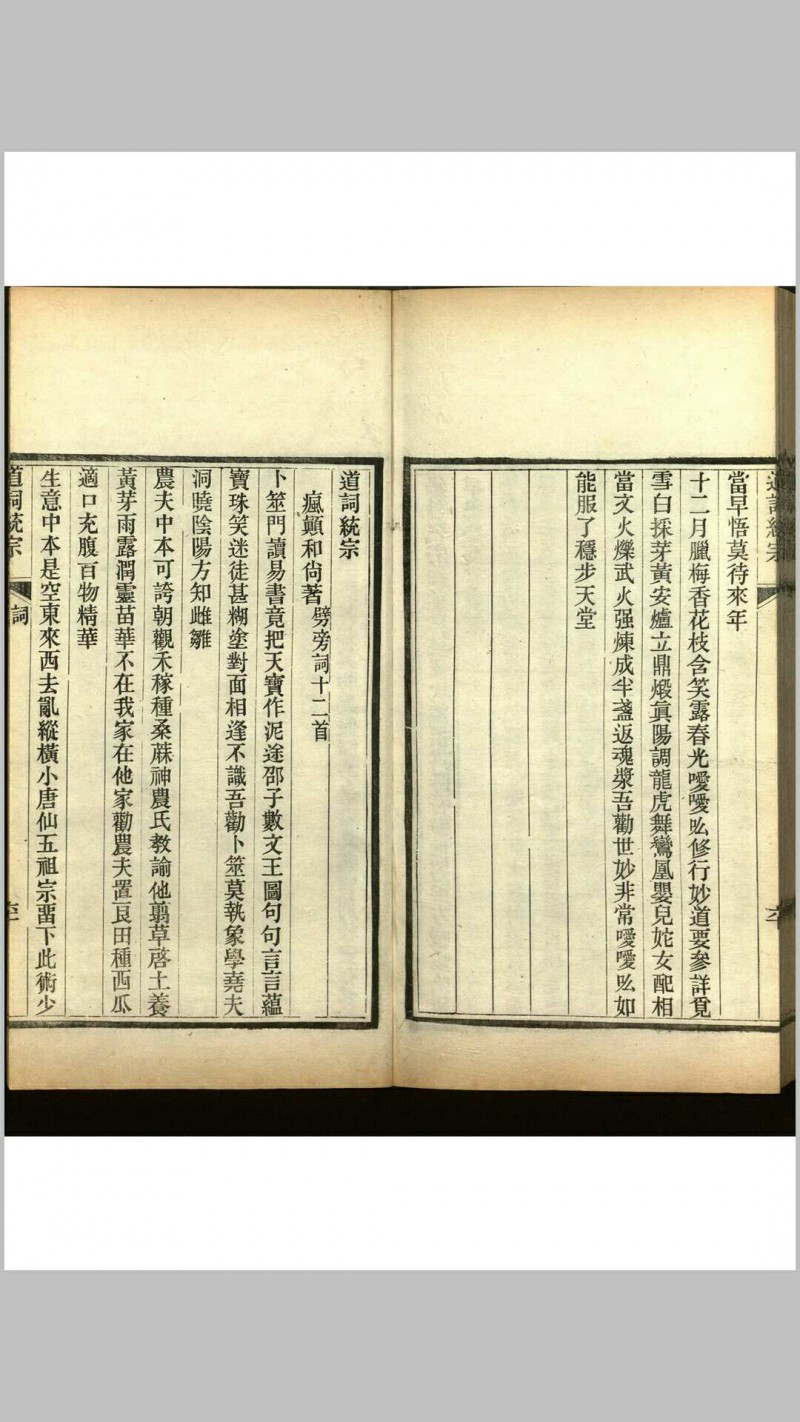 當早悟莫待來年
十二月臘梅香花枝含笑露春光噯噯吆修行妙道要參詳覓
雪白採芽黃安爐立鼎煅眞陽調龍虎舞鸞鳳嬰兒姹女配相
當文火爍武火强煉成半盞返魂漿吾勸世妙非常噯噯吆如
能服了穩步天堂
道詞統宗
瘋顛和尚著 劈旁詞十二首
卜筮門讀易書竟把天寶作泥途邵子數文王圖句句言言蘊
寶珠笑迷徒甚糊塗對面相逢不識吾勸卜筮莫執象學堯夫
洞曉陰陽方知雌雛
農夫中本可誇朝觀禾稼種桑蔴神農氏教諭他翦草啓土養
黃芽雨露潤靈苗華不在我家在他家勸農夫置良田種西瓜
適口充腹百物精華
生意中本是空東來西去亂縱橫小唐仙五祖宗畱下此術少
道詞統宗 詞